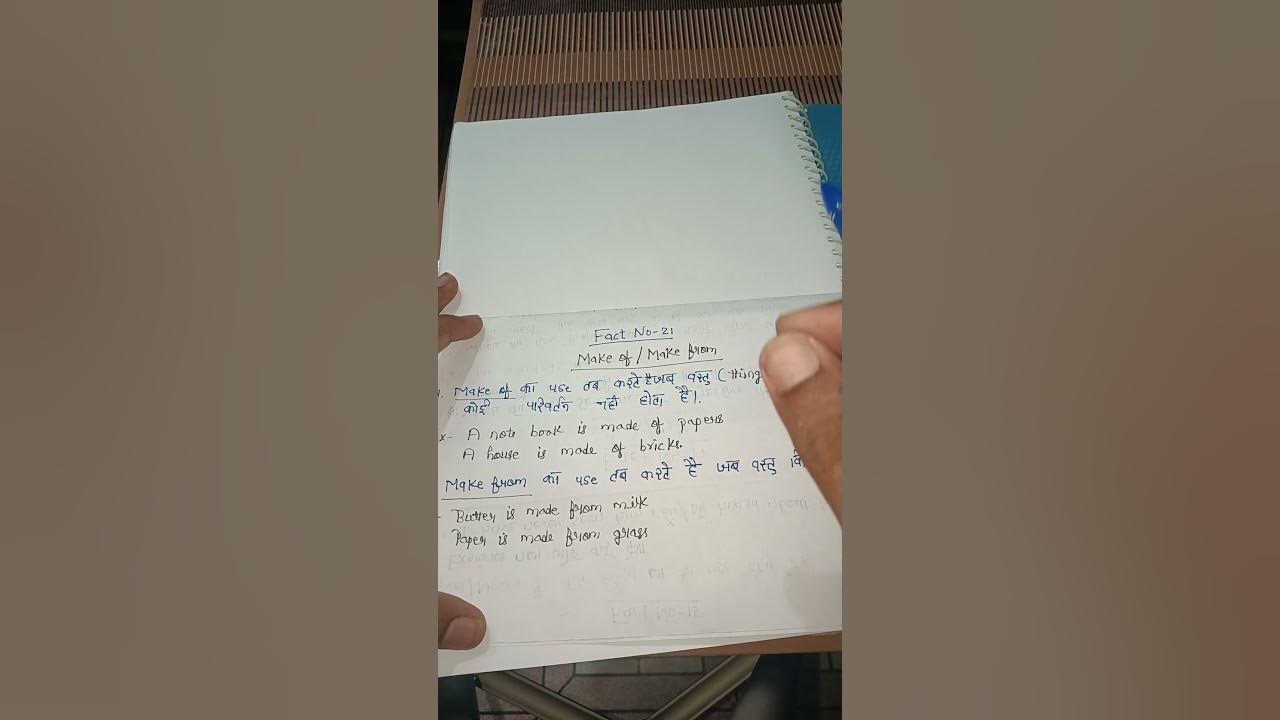 Fact No-21
Make of / Make from
1. Make of का use तब करते है जब वस्तु (thing
कोई परिवर्तन नही होता है।
x- A note book is made of papers
A house is made of bricks.
Make from का use तब करते है जब वस्तु
- Butter is made from milk
Paper is made from grass